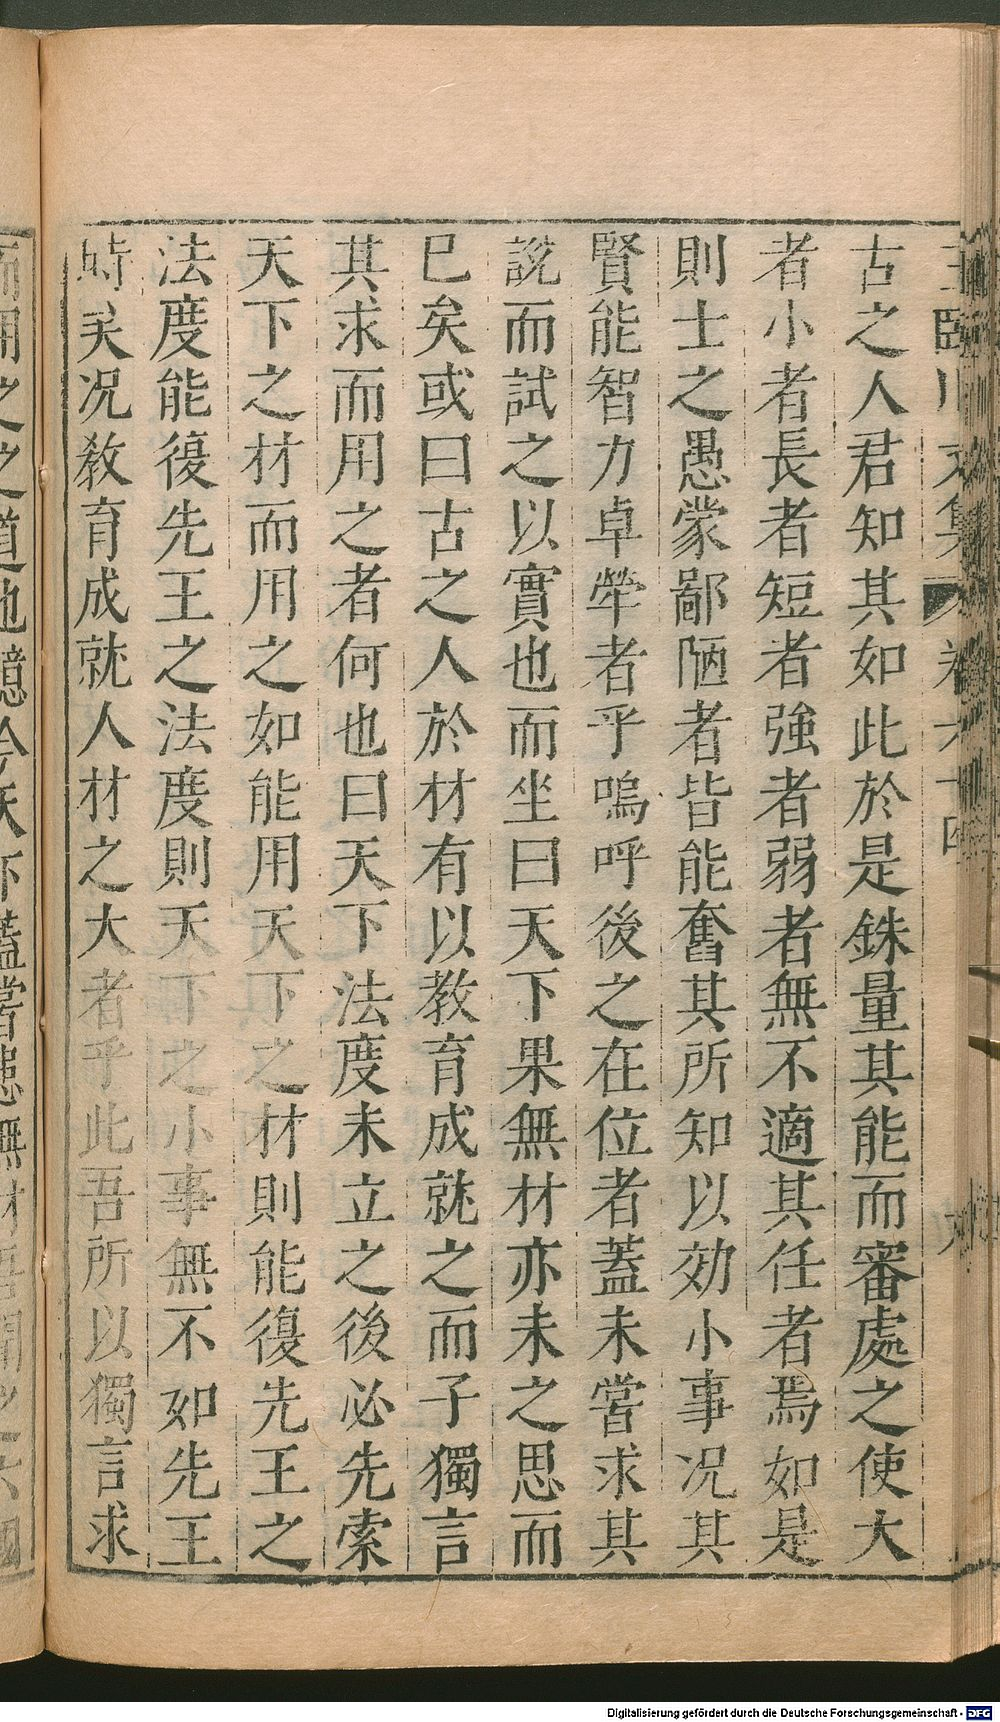 王臨川文集 卷六十四
古之人君知其如此於是銖量其能而審處之使大
者小者長者短者強者弱者無不適其任者焉如是
則士之愚蒙鄙陋者皆能奮其所知以効小事况其
賢能智力卓犖者乎嗚呼後之在位者蓋未嘗求其
說而試之以實也而坐曰天下果無材亦未之思而
已矣或曰古之人於材有以教育成就之而子獨言
其求而用之者何也曰天下法度未立之後必先索
天下之材而用之如能用天下之材則能復先王之
法度能復先王之法度則天下之小事無不如先王
時矣况教育成就人材之大者乎此吾所以獨言求
而用之之道也噫今天下蓋嘗患無材吾聞之六國
Digitalisierung gefördert durch die Deutsche Forschungsgemeinschaft - DFG